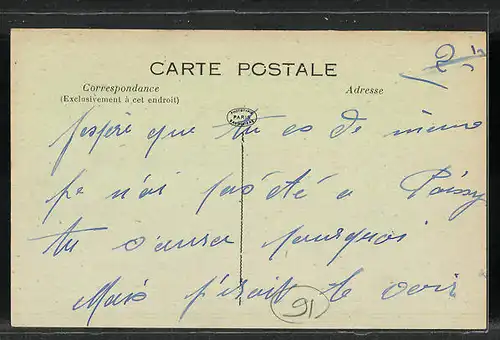 CARTE POSTALE
Correspondance
(Exclusivement à cet endroit)
Adresse
PARIS
J'espère que tu es de même
je n'ai pas été a Poissy
tu sauras pourquoi
Mais j'irait te voir
91